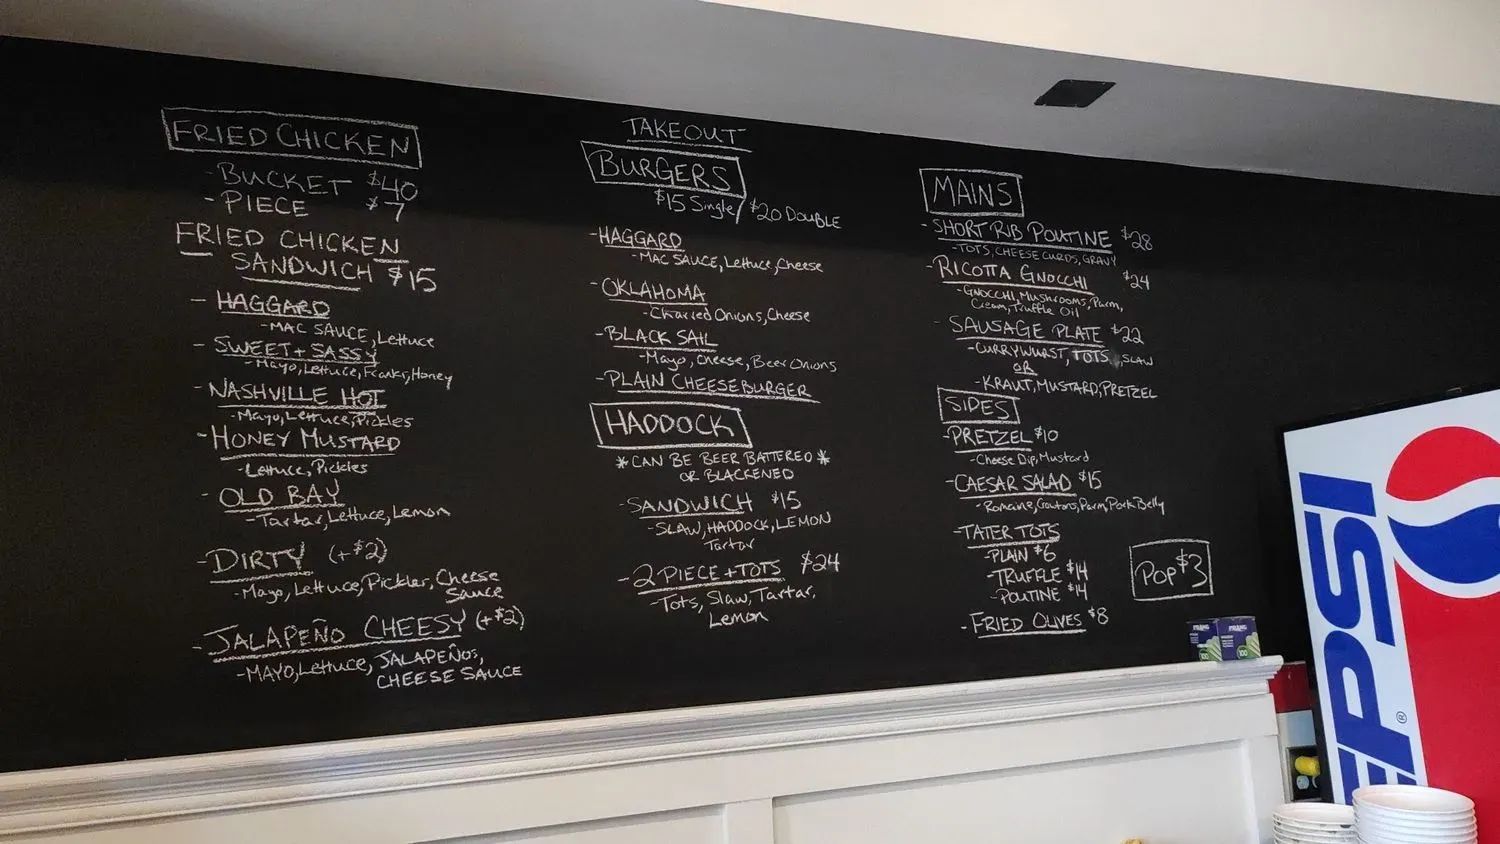 FRIED CHICKEN
- BUCKET $40
- PIECE $7
FRIED CHICKEN
SANDWICH $15
- HAGGARD
- MAC SAUCE, Lettuce
- SWEET + SASSY
- Mayo, Lettuce, Franks, Honey
- NASHVILLE HOT
- Mayo, Lettuce, Pickles
- HONEY MUSTARD
- Lettuce, Pickles
- OLD BAY
- Tartar, Lettuce, Lemon
- DIRTY (+$2)
- Mayo, Lettuce, Pickles, Cheese
Sauce
- JALAPEÑO CHEESY (+$2)
- MAYO, Lettuce, JALAPEÑOS,
CHEESE SAUCE
TAKEOUT
BURGERS
$15 Single / $20 DOUBLE
- HAGGARD
- MAC SAUCE, Lettuce, Cheese
- OKLAHOMA
- Charred Onions, Cheese
- BLACK SAIL
- Mayo, Cheese, Beer Onions
- PLAIN CHEESEBURGER
HADDOCK
* CAN BE BEER BATTERED *
OR BLACKENED
- SANDWICH $15
- SLAW, HADDOCK, LEMON
Tartar
- 2 PIECE + TOTS $24
- Tots, Slaw, Tartar,
Lemon
MAINS
- SHORT RIB POUTINE $28
- TOTS, CHEESE CURDS, GRAVY
- RICOTTA GNOCCHI $24
- GNOCCHI, MUSHROOMS, Parm,
Cream, Truffle Oil
- SAUSAGE PLATE $22
- CURRYWURST, TOTS, SLAW
OR
- KRAUT, MUSTARD, PRETZEL
SIDES
- PRETZEL $10
- Cheese Dip, Mustard
- CAESAR SALAD $15
- Romaine, Croutons, Parm, Pork Belly
- TATER TOTS
- PLAIN $6
- TRUFFLE $14
- POUTINE $14
- FRIED OLIVES $8
POP $3
PEPSI
®
100
100